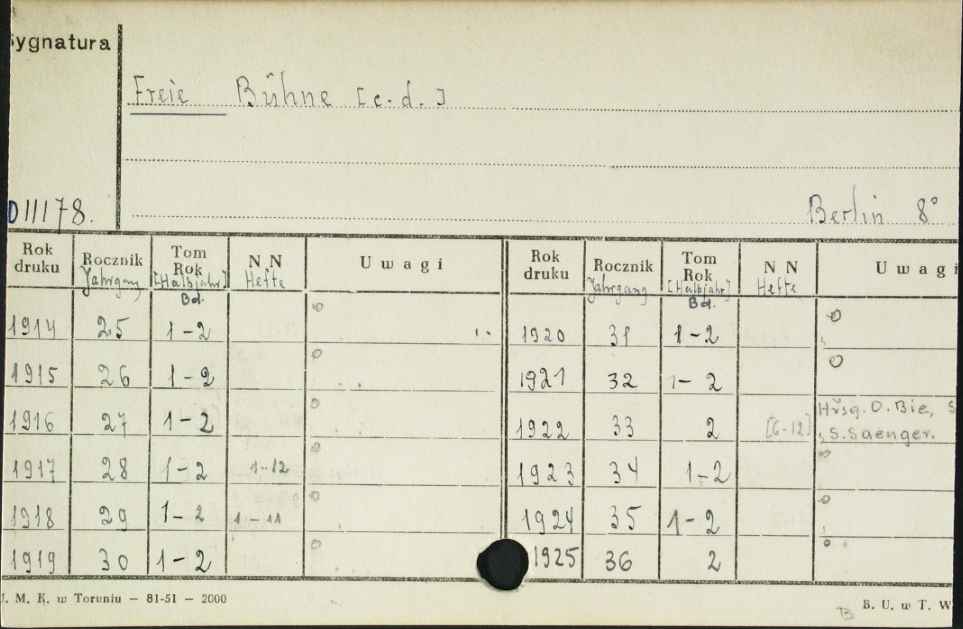 ygnatura
Freie Bühne [c.d.]
D III 178.
Berlin 8°
Rok druku Rocznik Tom Rok N N Uwagi Rok druku Rocznik Tom Rok N N Uwagi
Jahrgang [Halbjahr] Bd. Hefte Jahrgang [Halbjahr] Bd. Hefte
1914 25 1-2 1920 31 1-2
1915 26 1-2 1921 32 1-2
1916 27 1-2 1922 33 2 [6-12] Hrsg. O. Bie, S
, S. Saenger.
1917 28 1-2 1-12 1923 34 1-2
1918 29 1-2 1-11 1924 35 1-2
1919 30 1-2 1925 36 2
M. K. w Toruniu — 81-51 — 2000
B. U. w T. W